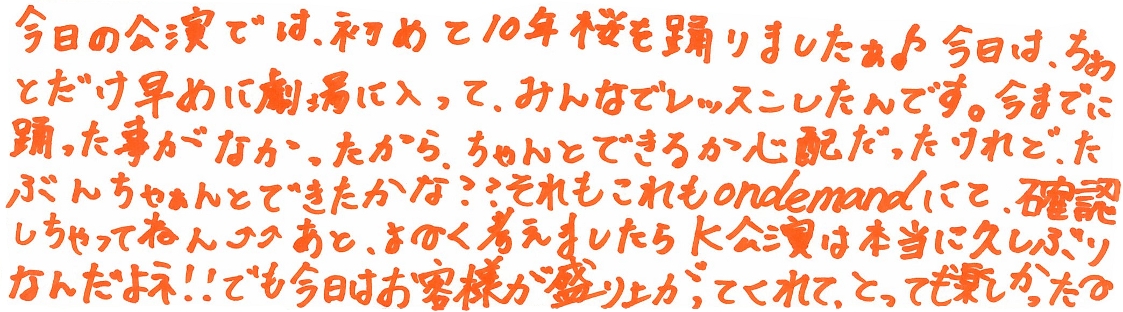 今日の公演では、初めて10年桜を踊りましたぁ♪今日は、ちょお
とだけ早めに劇場に入って、みんなでレッスンしたんです。今までに
踊った事がなかったから、ちゃんとできるか心配だったけれど、た
ぶんちゃぁんとできたかな??それもこれもondemandにて、確認
しちゃってねん⤴⤴あと、よ〜く考えましたらK公演は本当に久しぶり
なんだよネ!!でも今日はお客様が盛り上がってくれて、とっても楽しかった〜